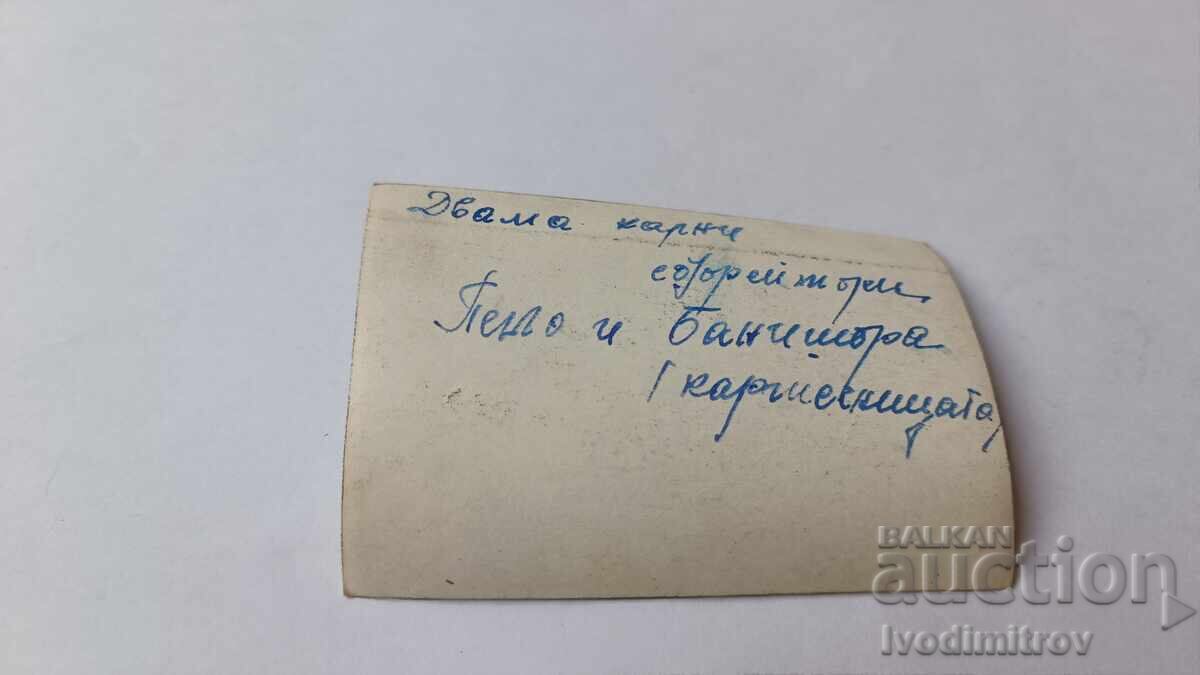 Двама карни
ефрейтори
Пено и Банишора
(картечницата)
BALKAN
auction
Ivodimitrov